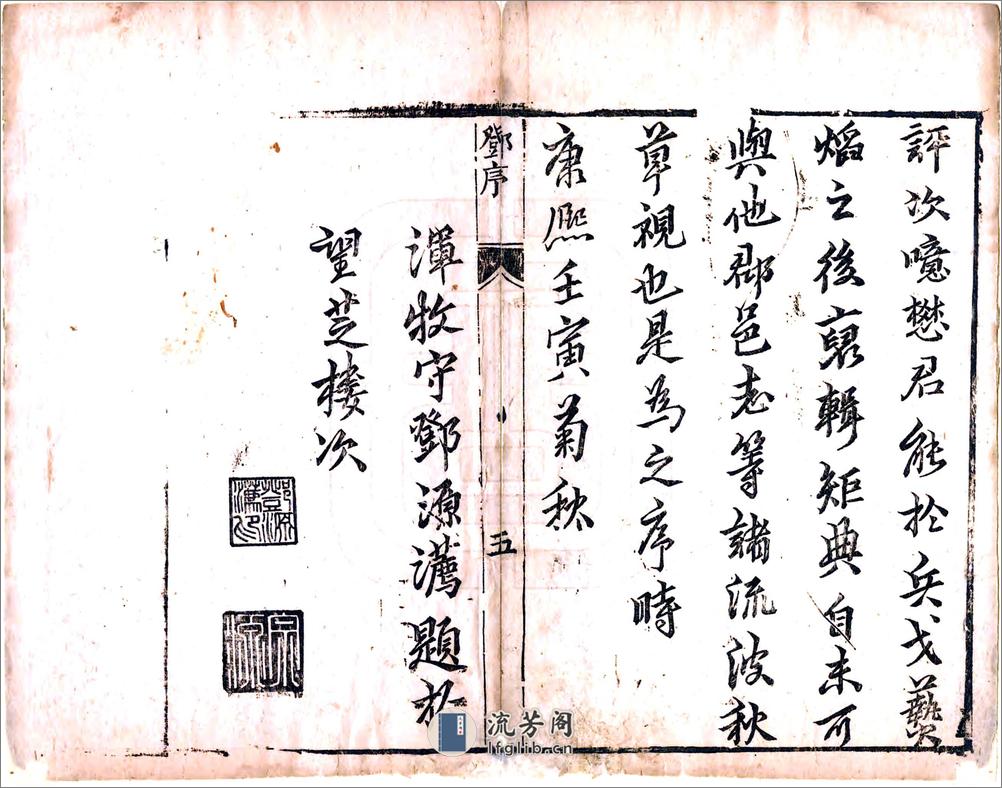 評次噫懋君能於兵戈爇
熖之後裒輯矩典自未可
與他郡邑志等諸流波秋
草視也是為之序時
康熙壬寅菊秋
鄧序
五
渾牧守鄧源瀳題於
望芝樓次
流芳阁
lfglib.cn